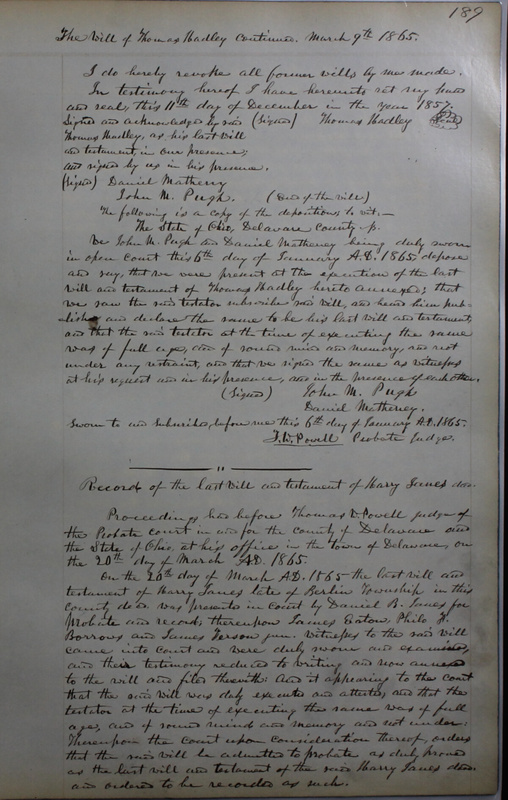 189
The Will of Thomas Hadley Continued. March 9th 1865.
I do hereby revoke all former wills by me made.
In testimony hereof I have hereunto set my hand
and seal this 11th day of December in the year 1857.
Signed and acknowledged by said (Signed) Thomas Hadley
Thomas Hadley, as his last will
and testament, in our presence;
and signed by us in his presence.
(Signed) Daniel Matheny
John M. Pugh. (End of the will)
The following is a copy of the depositions to wit,—
The State of Ohio, Delaware County ss.
We John M. Pugh and Daniel Matheney being duly sworn
in open Court this 6th day of January A.D. 1865 depose
and say, that we were present at the execution of the last
will and testament of Thomas Hadley hereto annexed; that
we saw the said testator subscribe said will, and heard him pub-
lish and declare the same to be his last will and testament,
and that the said testator at the time of executing the same
was of full age, and of sound mind and memory, and not
under any restraint, and that we signed the same as witnesses
at his request and in his presence, and in the presence of each other.
(Signed) John M. Pugh
Daniel Matheney.
Sworn to and subscribed, before me this 6th day of January A.D. 1865.
T.W. Powell Probate Judge.
Record of the last will and testament of Harry Janes decd.
Proceedings had before Thomas W. Powell judge of
the Probate court in and for the county of Delaware and
the State of Ohio, at his office in the town of Delaware, on
the 20th day of March AD. 1865.
On the 20th day of March A.D. 1865 the last will and
testament of Harry Janes late of Berlin Township in this
County decd. was presented in Court by Daniel B. Janes for
Probate and record; thereupon James Eaton, Philo H.
Borrows and James Ferson jun. witnesses to the said will
came into Court and were duly sworn and examined,
and their testimony reduced to writing and now annexed
to the will and filed therewith: and it appearing to the court
that the said will was duly executed and attested, and that the
testator at the time of executing the same was of full
age, and of sound mind and memory and not under:
Thereupon the Court upon consideration thereof, orders
that the said will be admitted to probate as duly proved
as the last will and testament of the said Harry Janes decd.
and ordered to be recorded as such.